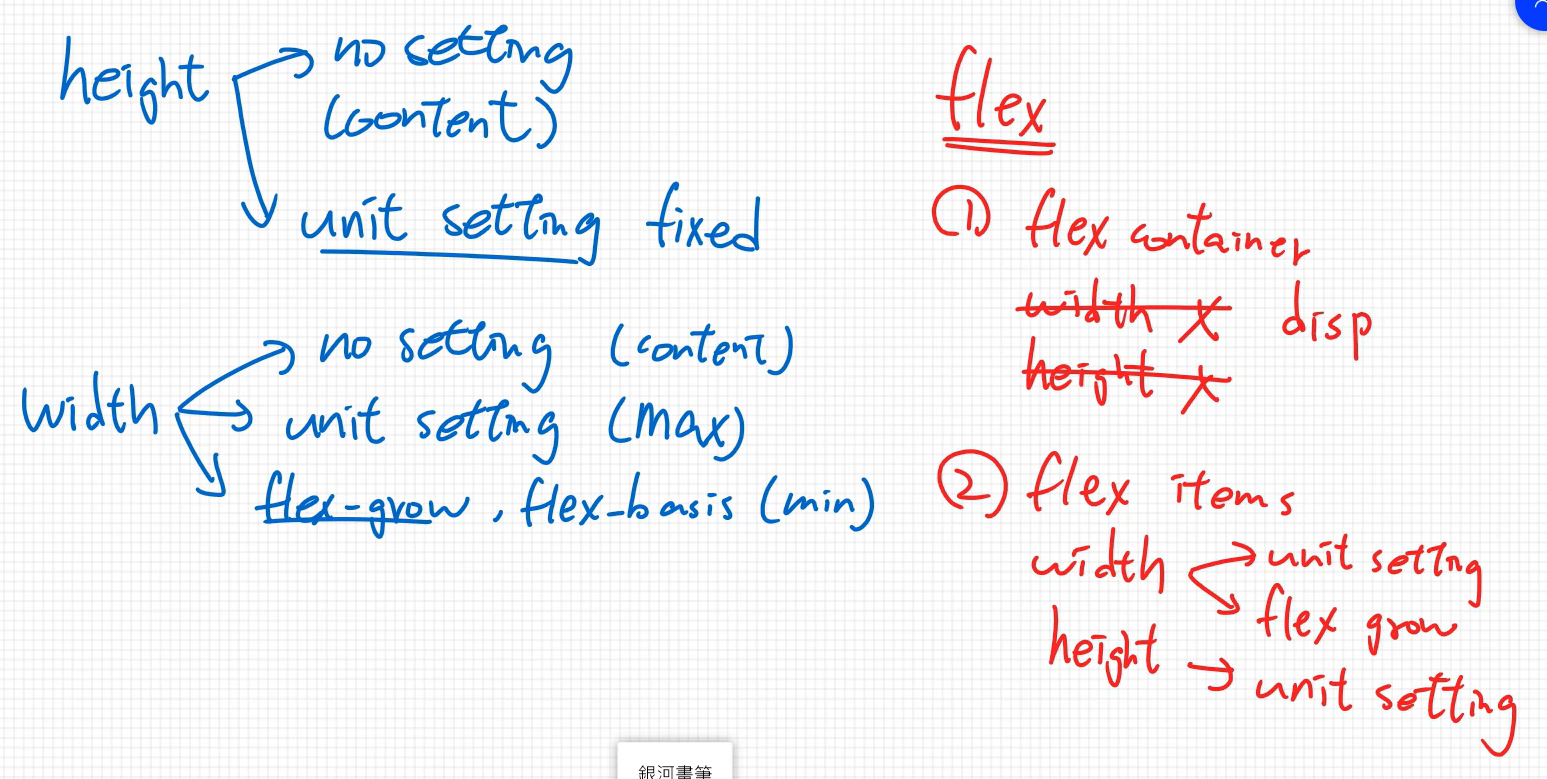 height
no setting
(content)
unit setting fixed
width
no setting (content)
unit setting (max)
flex-grow, flex-basis (min)
flex
① flex container
width x disp
height x
② flex items
width
unit setting
flex grow
height → unit setting
銀河書筆